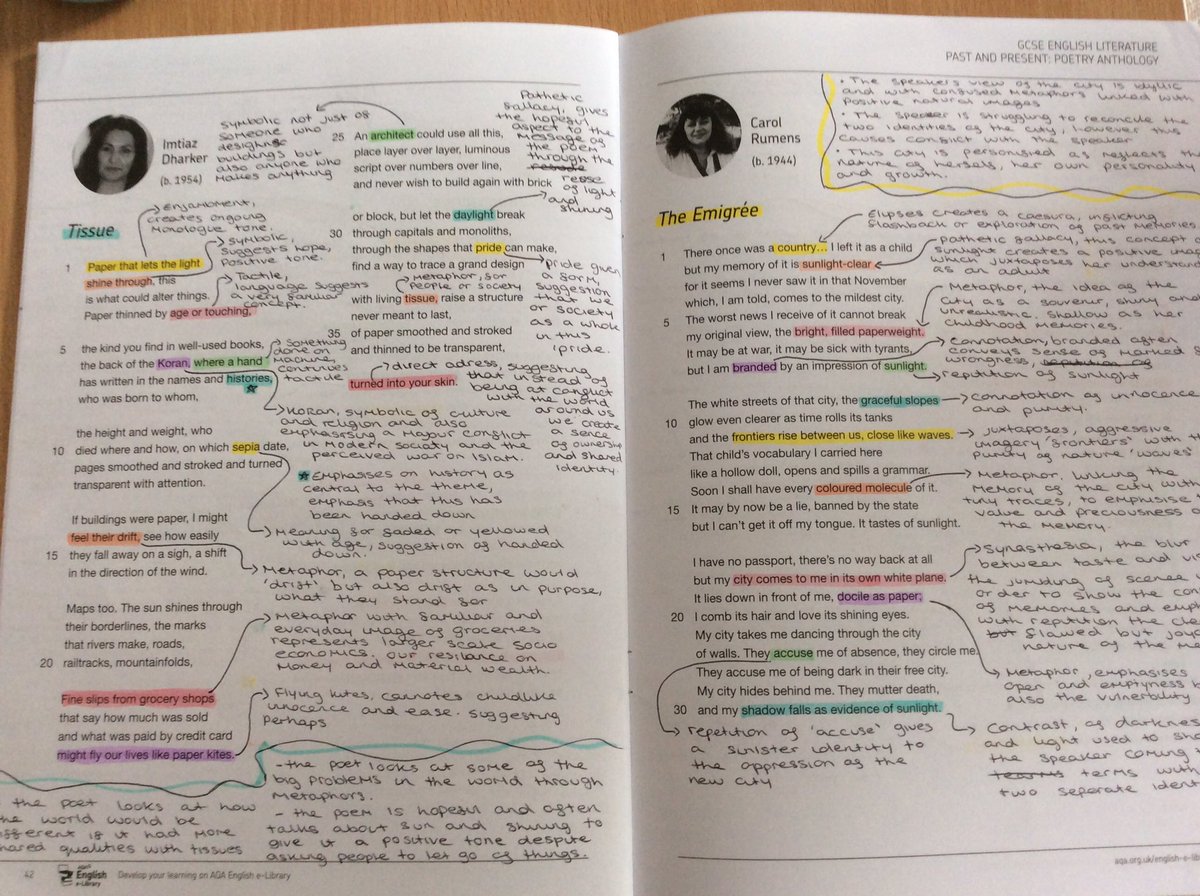 GCSE ENGLISH LITERATURE
PAST AND PRESENT: POETRY ANTHOLOGY
Imtiaz
Dharker
(b. 1954)
symbolic not just of
someone who
buildings but
also anyone who
makes anything
Pathetic
fallacy, gives
the hopeful
aspect to the
message of
the poem
through the
of light
and shining
Tissue
Enjambment,
creates ongoing
Monologue tone.
symbolic,
Suggests hope,
Positive tone.
Tactile,
language suggests
a very familiar
concept.
1 Paper that lets the light
shine through, this
is what could alter things.
Paper thinned by age or touching,
5 the kind you find in well-used books,
the back of the Koran, where a hand
has written in the names and histories,
who was born to whom,
the height and weight, who
10 died where and how, on which sepia date,
pages smoothed and stroked and turned
transparent with attention.
If buildings were paper, I might
feel their drift, see how easily
15 they fall away on a sigh, a shift
in the direction of the wind.
Maps too. The sun shines through
their borderlines, the marks
that rivers make, roads,
20 railtracks, mountainfolds,
Fine slips from grocery shops
that say how much was sold
and what was paid by credit card
might fly our lives like paper kites.
25 An architect could use all this,
place layer over layer, luminous
script over numbers over line,
and never wish to build again with brick
or block, but let the daylight break
30 through capitals and monoliths,
through the shapes that pride can make,
find a way to trace a grand design
with living tissue, raise a structure
never meant to last,
35 of paper smoothed and stroked
and thinned to be transparent,
turned into your skin.
metaphor, for
people or society
Pride given
a form,
suggestion
that we
or society
as a whole
in this
pride.
something
done on
machine
continues
tactile
direct adress, suggesting
that instead of
being at conflict
with the world
around us
we create
a sence
of ownership
and shared
identity.
Koran, symbolic of culture
and religion and also
emphasising a Major conflict
in modern society and the
perceived war on Islam.
Emphasises on history as
central to the theme,
emphasis that this has
been handed down
Meaning for faded or yellowed
with age, suggestion of handed
down.
Metaphor, a paper structure would
'drift' but also drift as in purpose,
what they stand for
Metaphor with familiar and
everyday image of groceries
represents larger scale socio
economics. our resilance on
Money and Material wealth.
Flying kites, connotes childlike
innocence and ease. suggesting
perhaps
the poet looks at how
the world would be
different if it had more
shared qualities with tissues
- the poet looks at some of the
big problems in the world through
Metaphors.
- the poem is hopeful and often
talks about sun and shining to
give it a positive tone despite
asking people to let go of things.
42 English e-Library Develop your learning on AQA English e-Library
Carol
Rumens
(b. 1944)
• The speakers view of the city is idyllic
and with confused metaphors linked with
positive natural images
• The speaker is struggling to reconcile the
two identities of the city, however this
causes conflict with the speaker
• This city is personified as reflects the
nature of herself, her own personality
and growth.
The Emigrée
1 There once was a country... I left it as a child
but my memory of it is sunlight-clear
for it seems I never saw it in that November
which, I am told, comes to the mildest city.
5 The worst news I receive of it cannot break
my original view, the bright, filled paperweight.
It may be at war, it may be sick with tyrants,
but I am branded by an impression of sunlight.
The white streets of that city, the graceful slopes
10 glow even clearer as time rolls its tanks
and the frontiers rise between us, close like waves.
That child's vocabulary I carried here
like a hollow doll, opens and spills a grammar.
Soon I shall have every coloured molecule of it.
15 It may by now be a lie, banned by the state
but I can't get it off my tongue. It tastes of sunlight.
I have no passport, there's no way back at all
but my city comes to me in its own white plane.
It lies down in front of me, docile as paper;
20 I comb its hair and love its shining eyes.
My city takes me dancing through the city
of walls. They accuse me of absence, they circle me.
They accuse me of being dark in their free city.
My city hides behind me. They mutter death,
30 and my shadow falls as evidence of sunlight.
Elipses creates a caesura, inflicting
flashback or exploration of past memories
pathetic fallacy, this concept of
sunlight creates a positive image
which juxtaposes her understand
as an adult
Metaphor, the idea of the
city as a souvenir, shiny and
unrealistic. Shallow as her
childhood memories.
connotation, branded often
conveys sense of marked
wrongness,
repitition of sunlight
connotation of innocence
and purity.
juxtaposes, aggressive
imagery 'frontiers' with the
purity of nature 'waves'
Metaphor, linking the
Memory of the city with
tiny traces, to emphisise
value and preciousness of
the memory.
Synasthesia, the blur
between taste and vi
the jumbling of scences
order to show the con
of memories and emp
with repitition the cle
flawed but joy
nature of the me
Metaphor, emphasises
open and emptyness
also the vulnerbility
Contrast, of darkness
and light used to sho
the speaker coming
terms with
two separate ident
repitition of 'accuse' gives
a sinister identity to
the oppression of the
new city
aqa.org.uk/english-e-lib